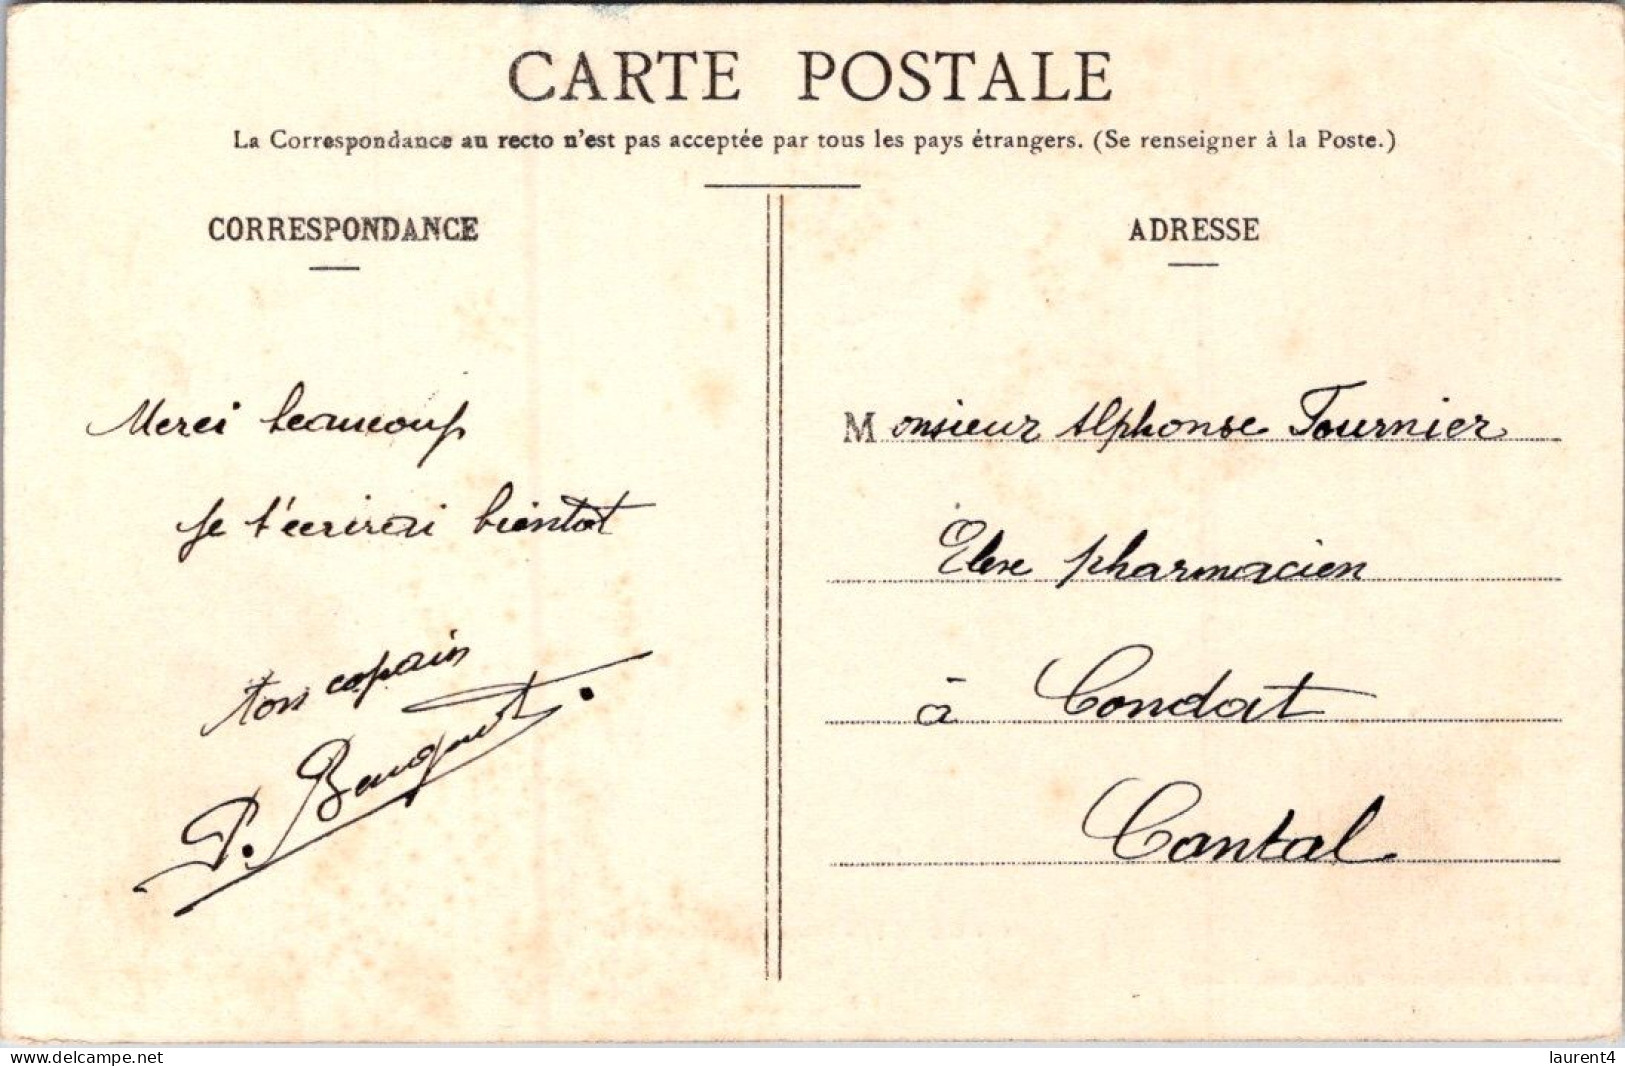 CARTE POSTALE
La Correspondance au recto n'est pas acceptée par tous les pays étrangers. (Se renseigner à la Poste.)
CORRESPONDANCE
Merci beaucoup
Je t'écrirai bientot
ton copain
P.
ADRESSE
Monsieur Alphonse Fournier
Eleve pharmacien
à Condat
Cantal.
delcampe.net
laurent4